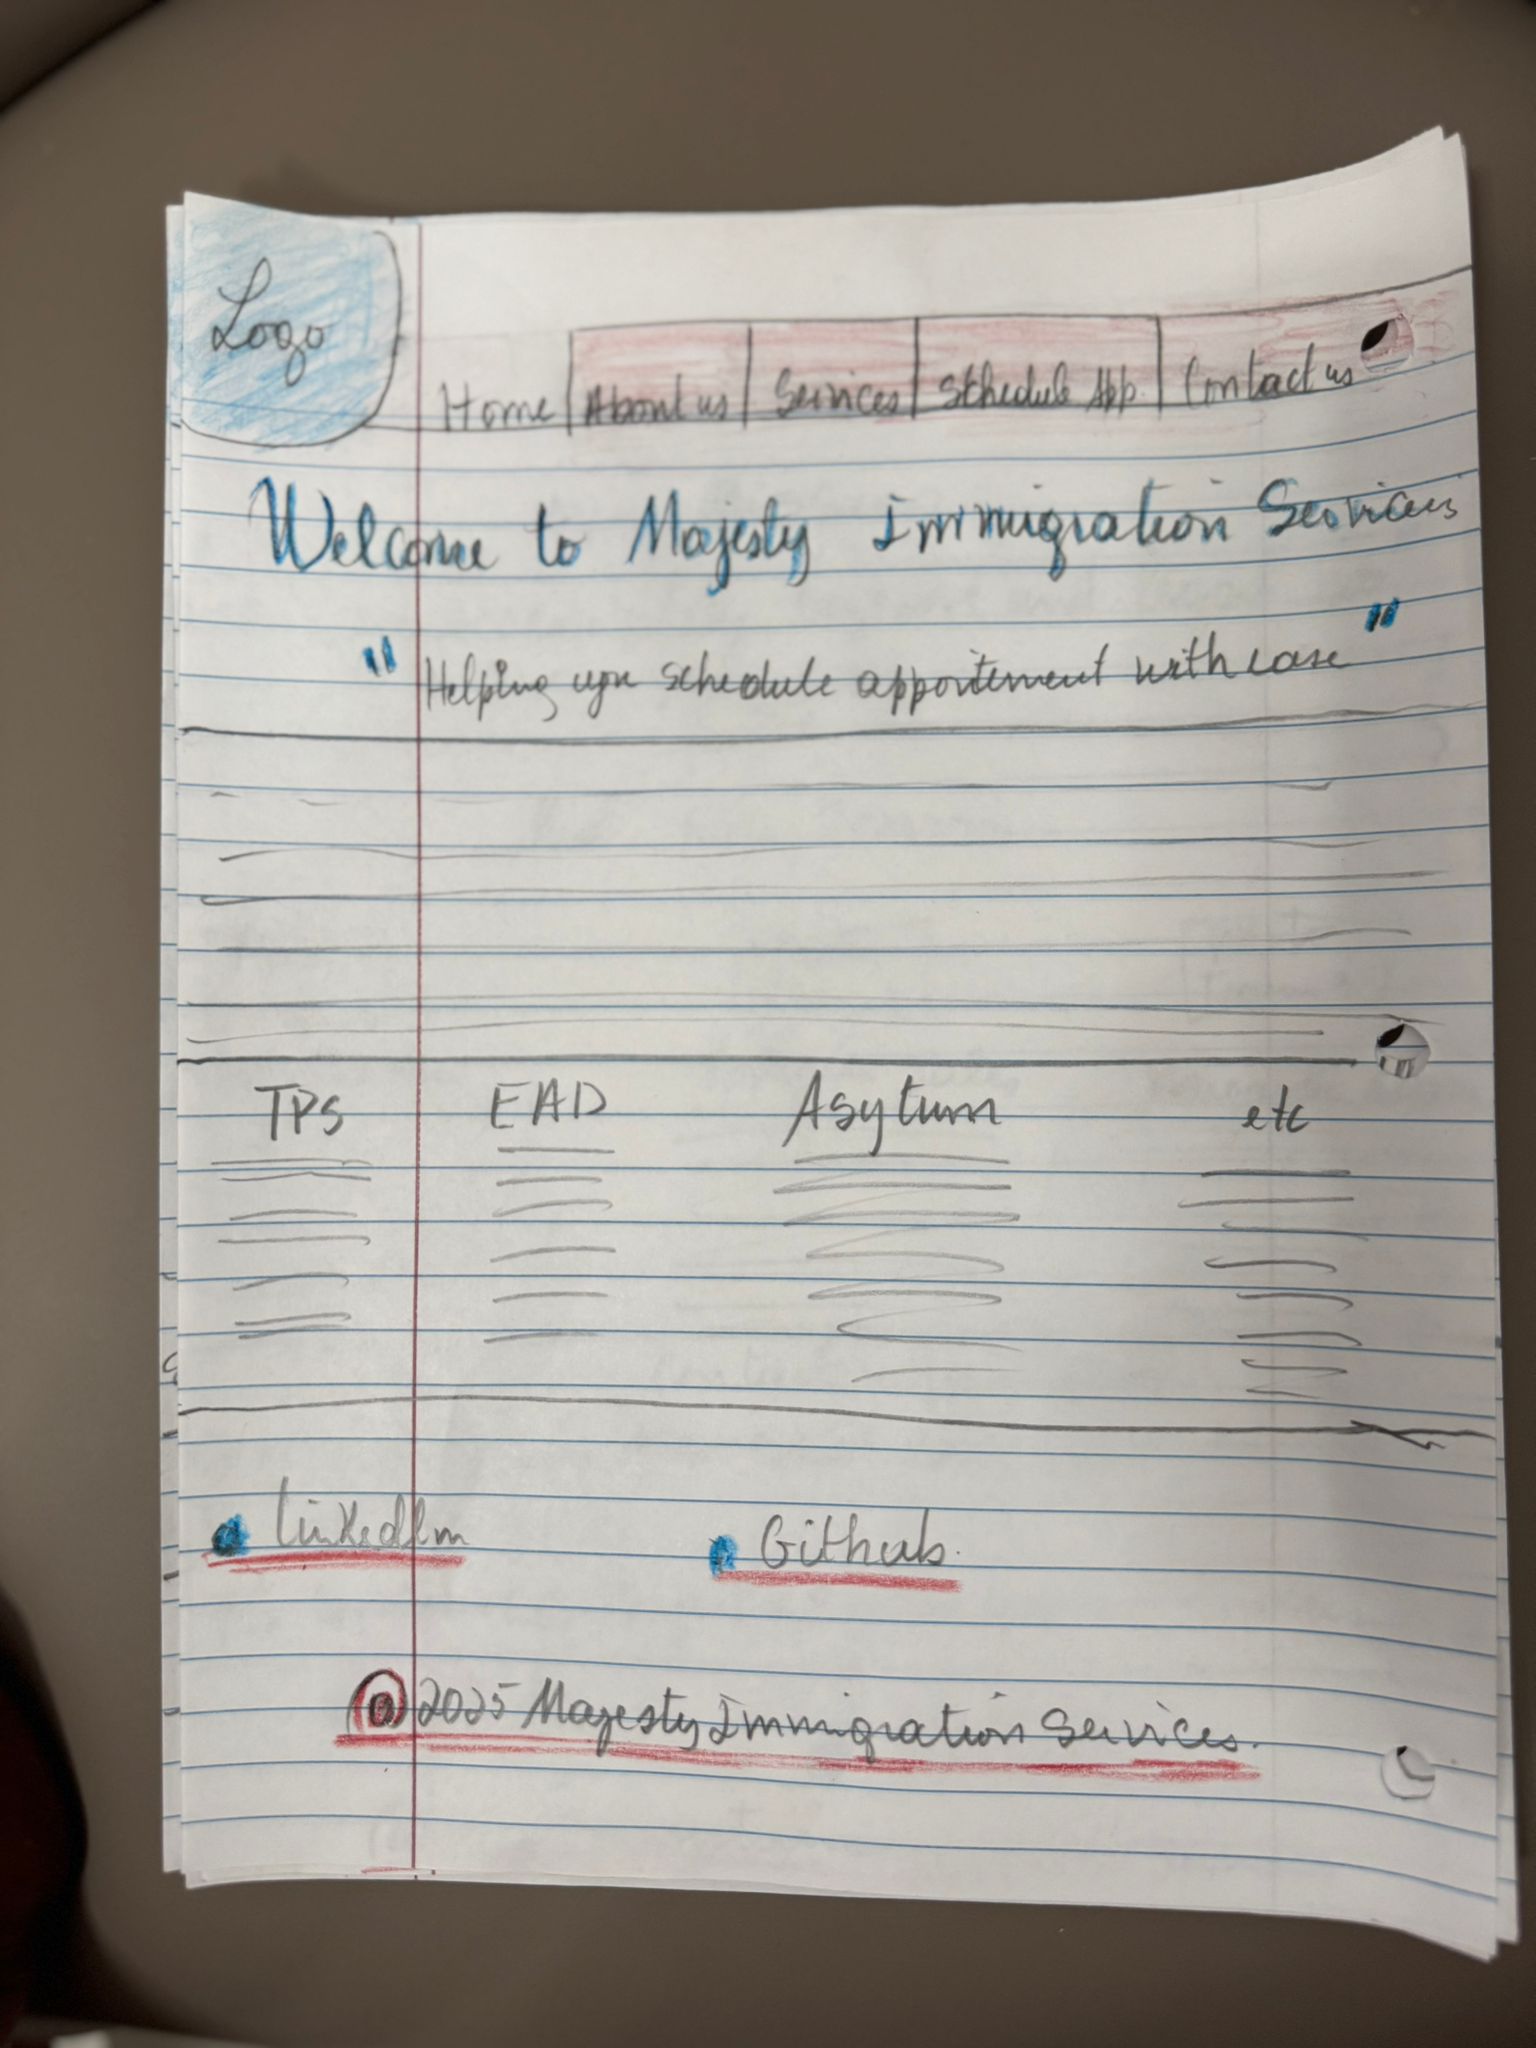 Logo
Home About us Services Schedule App. Contact us
Welcome to Majesty Immigration Services
"Helping you schedule appointement with ease"
TPS EAD Asylum etc
LinkedIn Github.
@2025 Majesty Immigration Services.